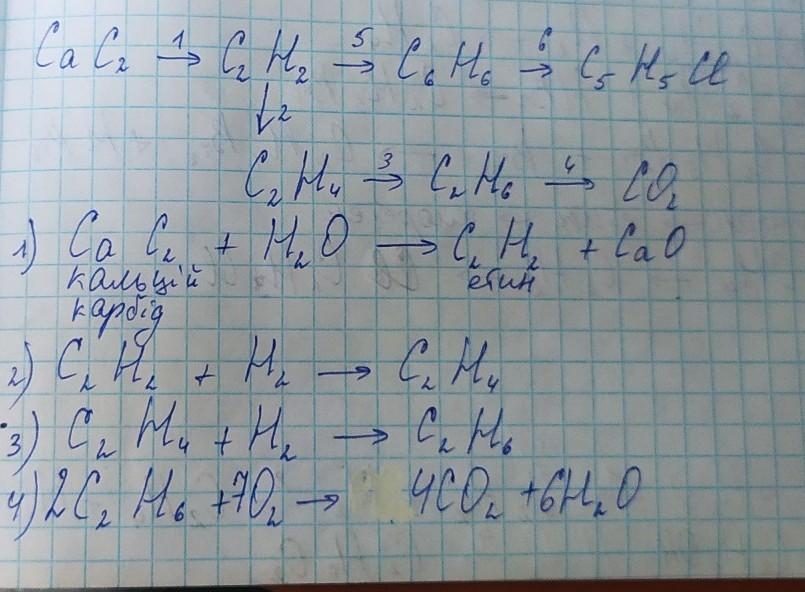 CaC₂ →¹ C₂H₂ →⁵ C₆H₆ →⁶ C₅H₅Cl
↓2
C₂H₄ →³ C₂H₆ →⁴ CO₂
1) CaC₂ + H₂O → C₂H₂ + CaO
кальцій етин
карбід
2) C₂H₂ + H₂ → C₂H₄
3) C₂H₄ + H₂ → C₂H₆
4) 2C₂H₆ + 7O₂ → 4CO₂ + 6H₂O